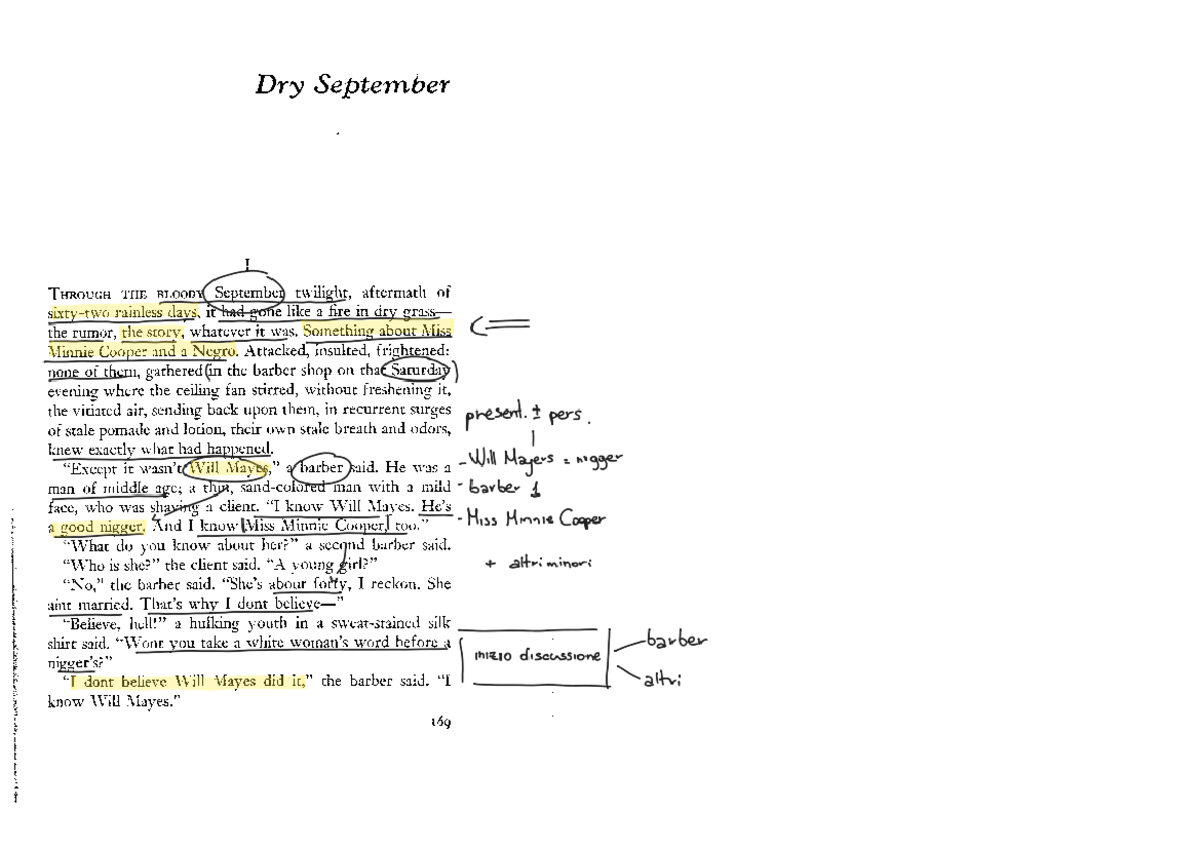 Dry September
I
THROUGH THE BLOODY September twilight, aftermath of
sixty-two rainless days, it had gone like a fire in dry grass—
the rumor, the story, whatever it was. Something about Miss
Minnie Cooper and a Negro. Attacked, insulted, frightened:
none of them, gathered in the barber shop on that Saturday
evening where the ceiling fan stirred, without freshening it,
the vitiated air, sending back upon them, in recurrent surges
of stale pomade and lotion, their own stale breath and odors,
knew exactly what had happened.
“Except it wasn't Will Mayes,” a barber said. He was a
man of middle age; a thin, sand-colored man with a mild
face, who was shaving a client. “I know Will Mayes. He's
a good nigger. And I know Miss Minnie Cooper, too.”
“What do you know about her?” a second barber said.
“Who is she?” the client said. “A young girl?”
“No,” the barber said. “She's about forty, I reckon. She
aint married. That's why I dont believe—”
“Believe, hell!” a hulking youth in a sweat-stained silk
shirt said. “Wont you take a white woman's word before a
nigger's?”
“I dont believe Will Mayes did it,” the barber said. “I
know Will Mayes.”
169
present. ± pers.
- Will Mayers = nigger
- barber 1
- Miss Minnie Cooper
+ altri minori
inizio discussione
barber
altri